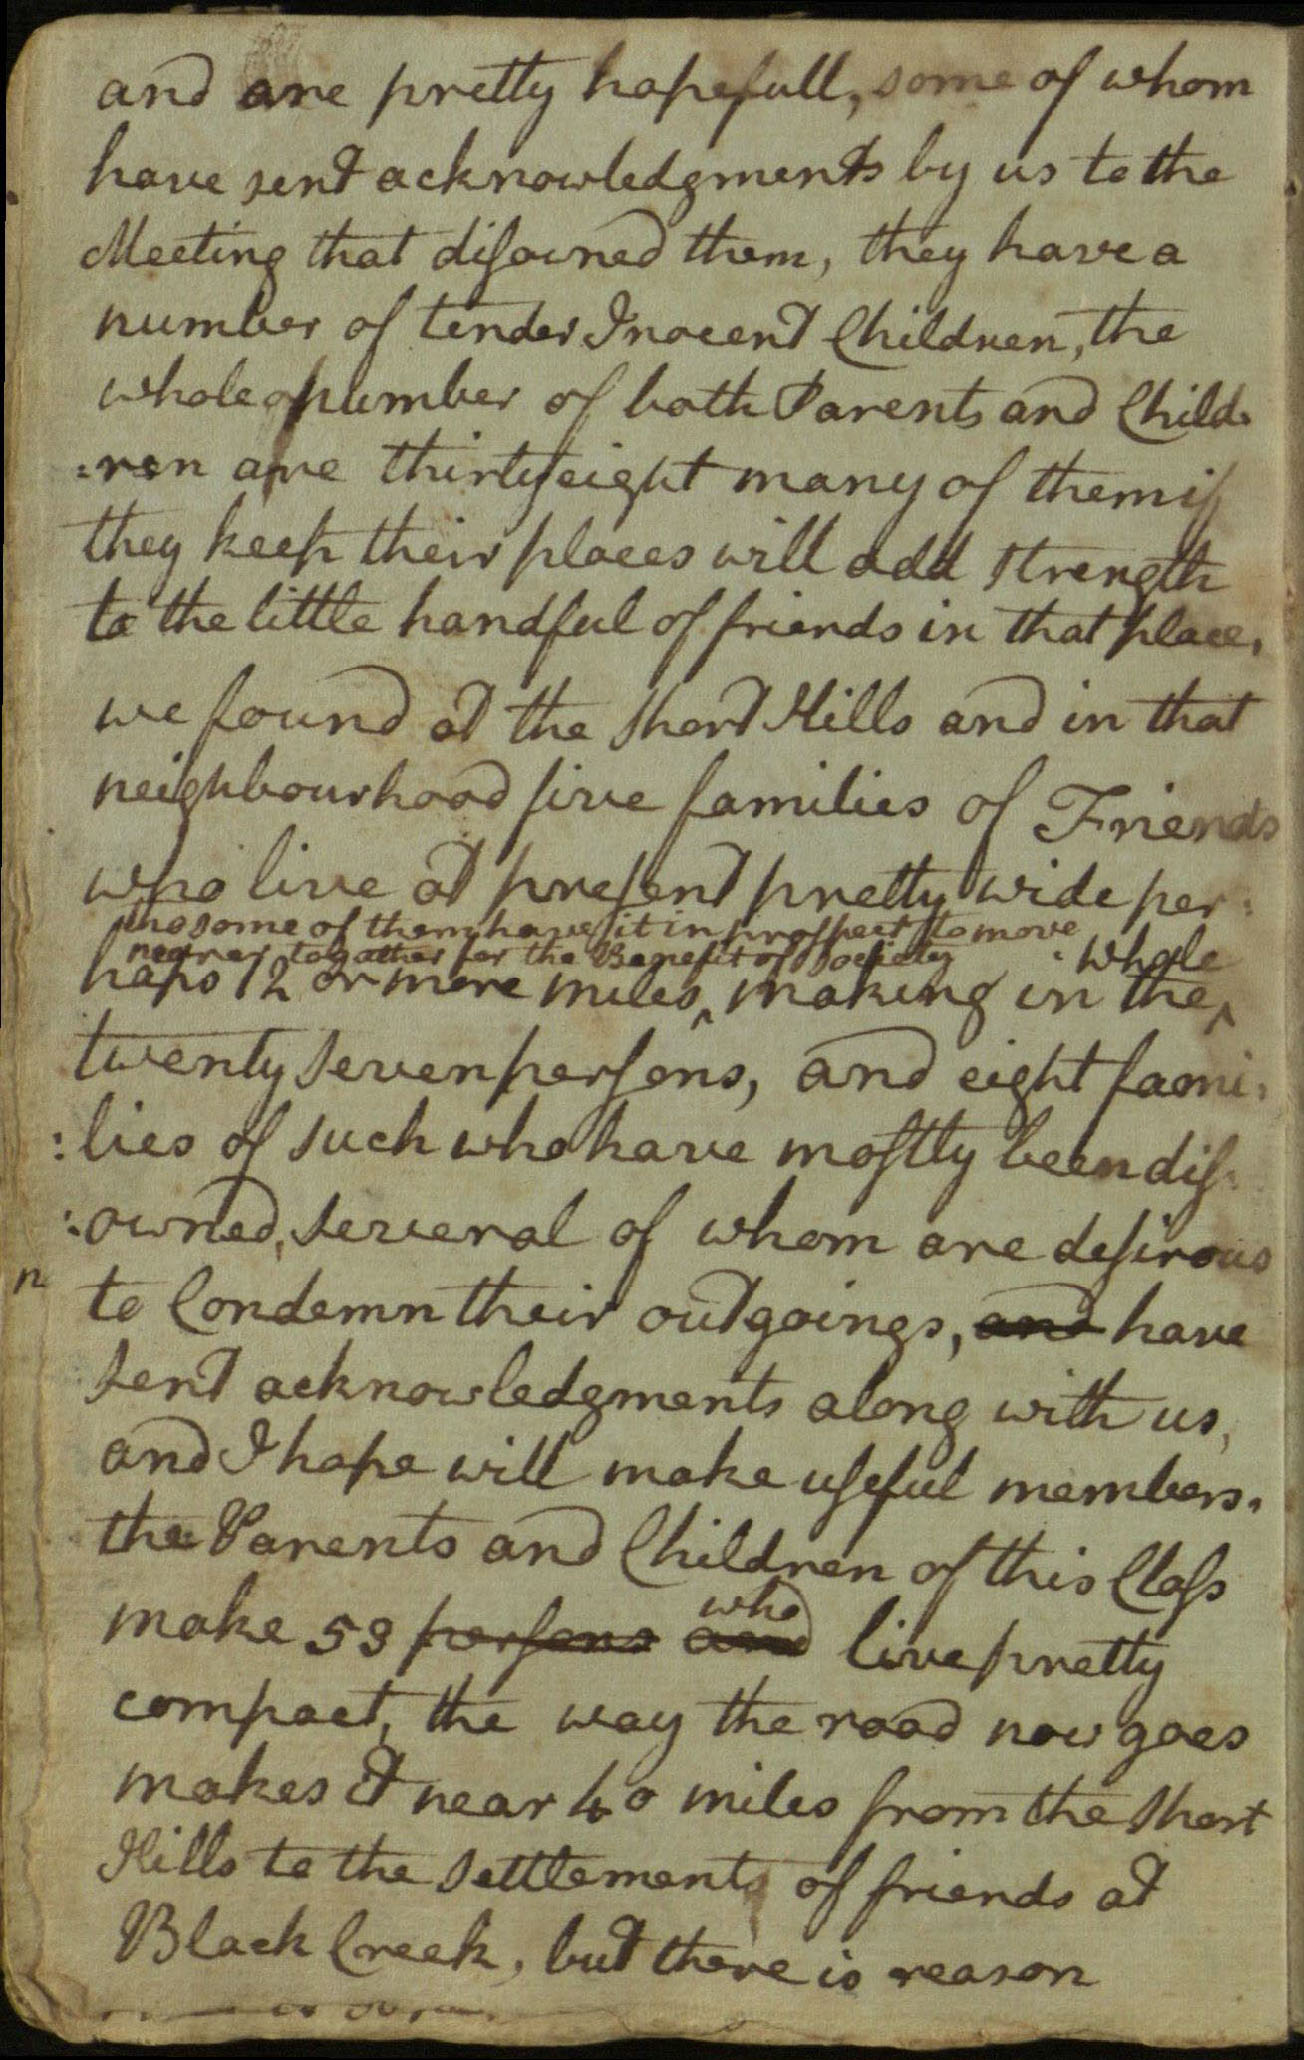 and are pretty hopefull, some of whom
have sent acknowledgments by us to the
Meeting that disowned them, they have a
number of tender Inocent Children, the
whole number of both Parents and Child-
:ren are thirty eight many of them if
they keep their places will add strength
to the little handful of friends in that place,
we found at the Short Hills and in that
neighbourhood five families of Friends
who live at present pretty wide per:
tho some of them have it in prospect to move
nearer together for the Benefit of Society
whole
haps 12 or more miles, ‸ making in the ‸
twenty seven persons, and eight fami:
:lies of such who have mostly been dis:
:owned, several of whom are desirous
n
to Condemn their outgoings, and have
sent acknowledgments along with us,
and I hope will make useful members.
the Parents and Children of this Class
who
make 59 persons and live pretty
compact, the way the road now goes
makes it near 40 miles from the Short
Hills to the Settlements of friends at
Black Creek, but there is reason